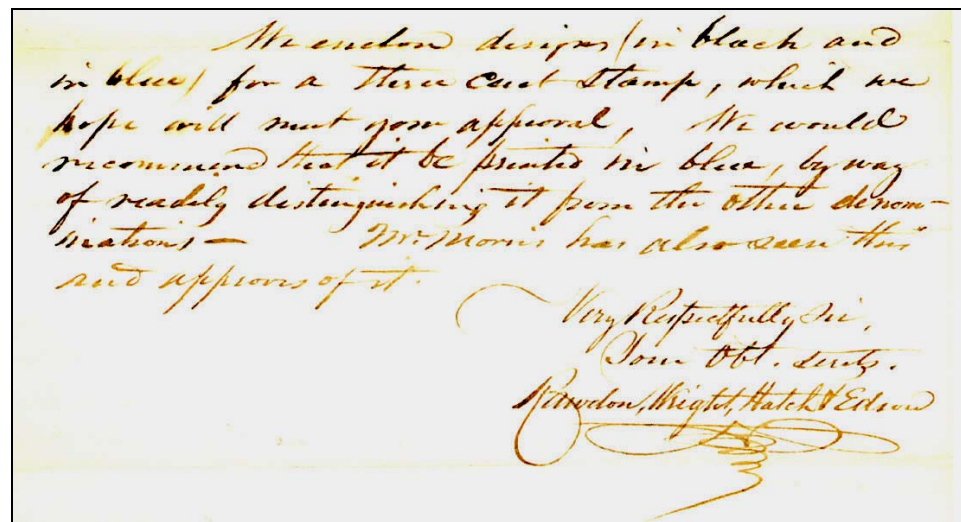 We enclose designs (in black and
in blue) for a three Cent Stamp, which we
hope will meet your approval, We would
recommend that it be printed in blue, by way
of readily distinguishing it from the other denom-
inations — Mr. Morris has also seen this
and approves of it.
Very Respectfully Sir,
Your Obt. Servts.
Rawdon, Wright, Hatch & Edson